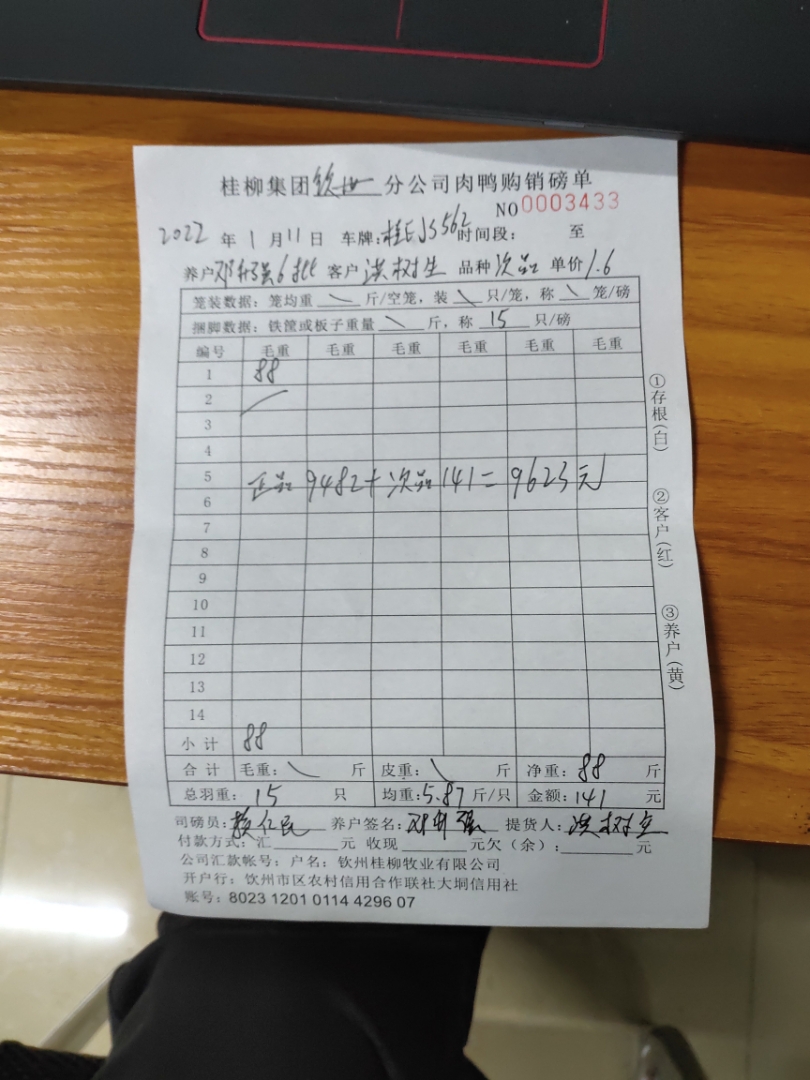 桂柳集团钦州分公司肉鸭购销磅单
NO 0003433
2022年1月11日 车牌:桂EJS562时间段: 至
养户邓升强6批 客户洪树生 品种次品 单价1.6
笼装数据:笼均重 \ 斤/空笼,装 \ 只/笼,称 \ 笼/磅
捆脚数据:铁筐或板子重量 \ 斤,称 15 只/磅
编号 毛重 毛重 毛重 毛重 毛重 毛重
1 88
2
3
4
5
正品9482+次品141=9623元
6
7
8
9
10
11
12
13
14
小计 88
合计 毛重:\ 斤 皮重:\ 斤 净重:88 斤
总羽重:15 只 均重:5.87斤/只 金额:141 元
司磅员: 养户签名:邓升强 提货人:洪树生
付款方式:汇 元 收现 元欠(余): 元
公司汇款帐号:户名:钦州桂柳牧业有限公司
开户行:钦州市区农村信用合作联社大垌信用社
账号:8023 1201 0114 4296 07
①存根(白)
②客户(红)
③养户(黄)